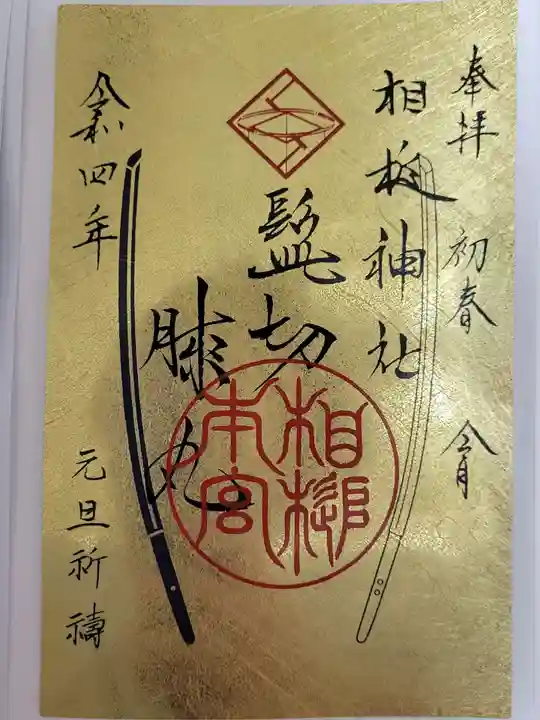 奉拝 初春 令月
相槌神社
髭切
膝丸
相槌
本宮
令和四年
元旦祈祷